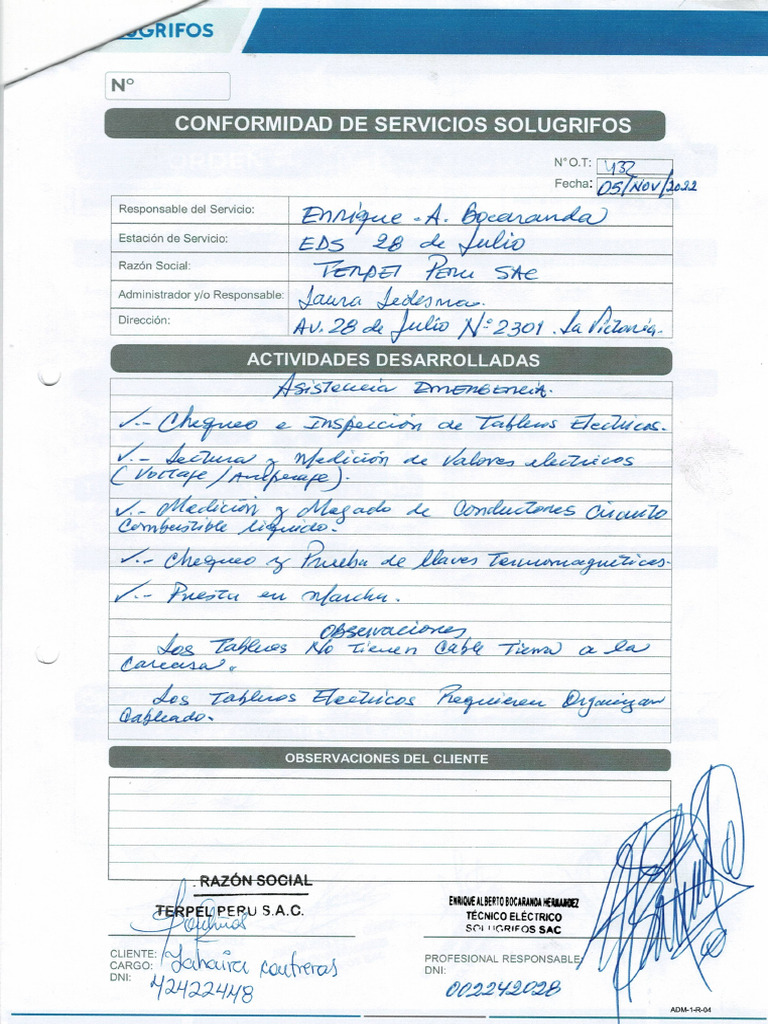 UGRIFOS
N°
CONFORMIDAD DE SERVICIOS SOLUGRIFOS
N° O.T: 432
Fecha: 05/NOV/2022
Responsable del Servicio: Enrique A. Bocaranda
Estación de Servicio: EDS 28 de Julio
Razón Social: TERPEL PERU SAC
Administrador y/o Responsable: Laura Ledesma.
Dirección: AV. 28 de Julio N° 2301. La Victoria.
ACTIVIDADES DESARROLLADAS
Asistencia EMERGENCIA.
✓.- Chequeo e Inspección de Tableros Electricos.
✓.- Lectura y Medición de Valores electricos
(Voltaje / Amperaje).
✓.- Medición y Megado de Conductores Circuito
Combustible liquido.
✓.- Chequeo y Prueba de llaves Termomagnéticas.
✓.- Puesta en Marcha.
Observaciones
Los Tableros No Tienen Cable Tierra a la
Carcasa.
Los Tableros Electricos Requieren Organizar
Cableado.
OBSERVACIONES DEL CLIENTE
RAZÓN SOCIAL
TERPEL PERU S.A.C.
ENRIQUE ALBERTO BOCARANDA HERNANDEZ
TÉCNICO ELÉCTRICO
SOLUGRIFOS SAC
CLIENTE:
CARGO: Yahaira Contreras
DNI: 42422448
PROFESIONAL RESPONSABLE:
DNI: 002242028
ADM-1-R-04